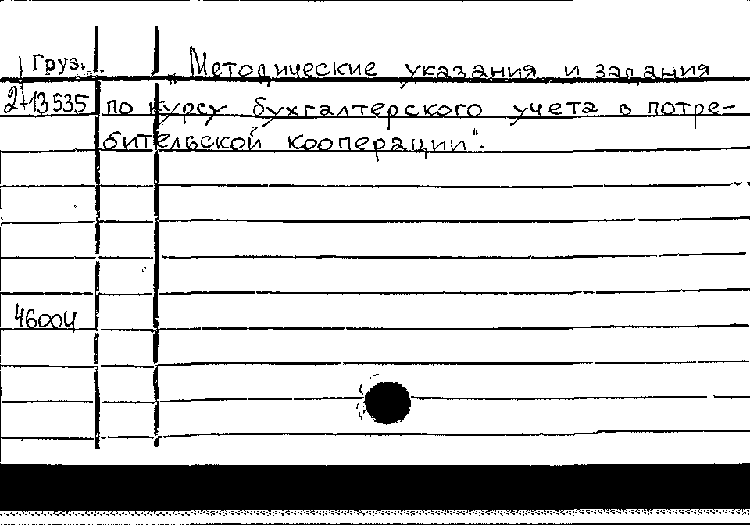 Груз. „Методические указания и задания
2-13535 по курсу бухгалтерского учета в потре-
бительской кооперации".
46004